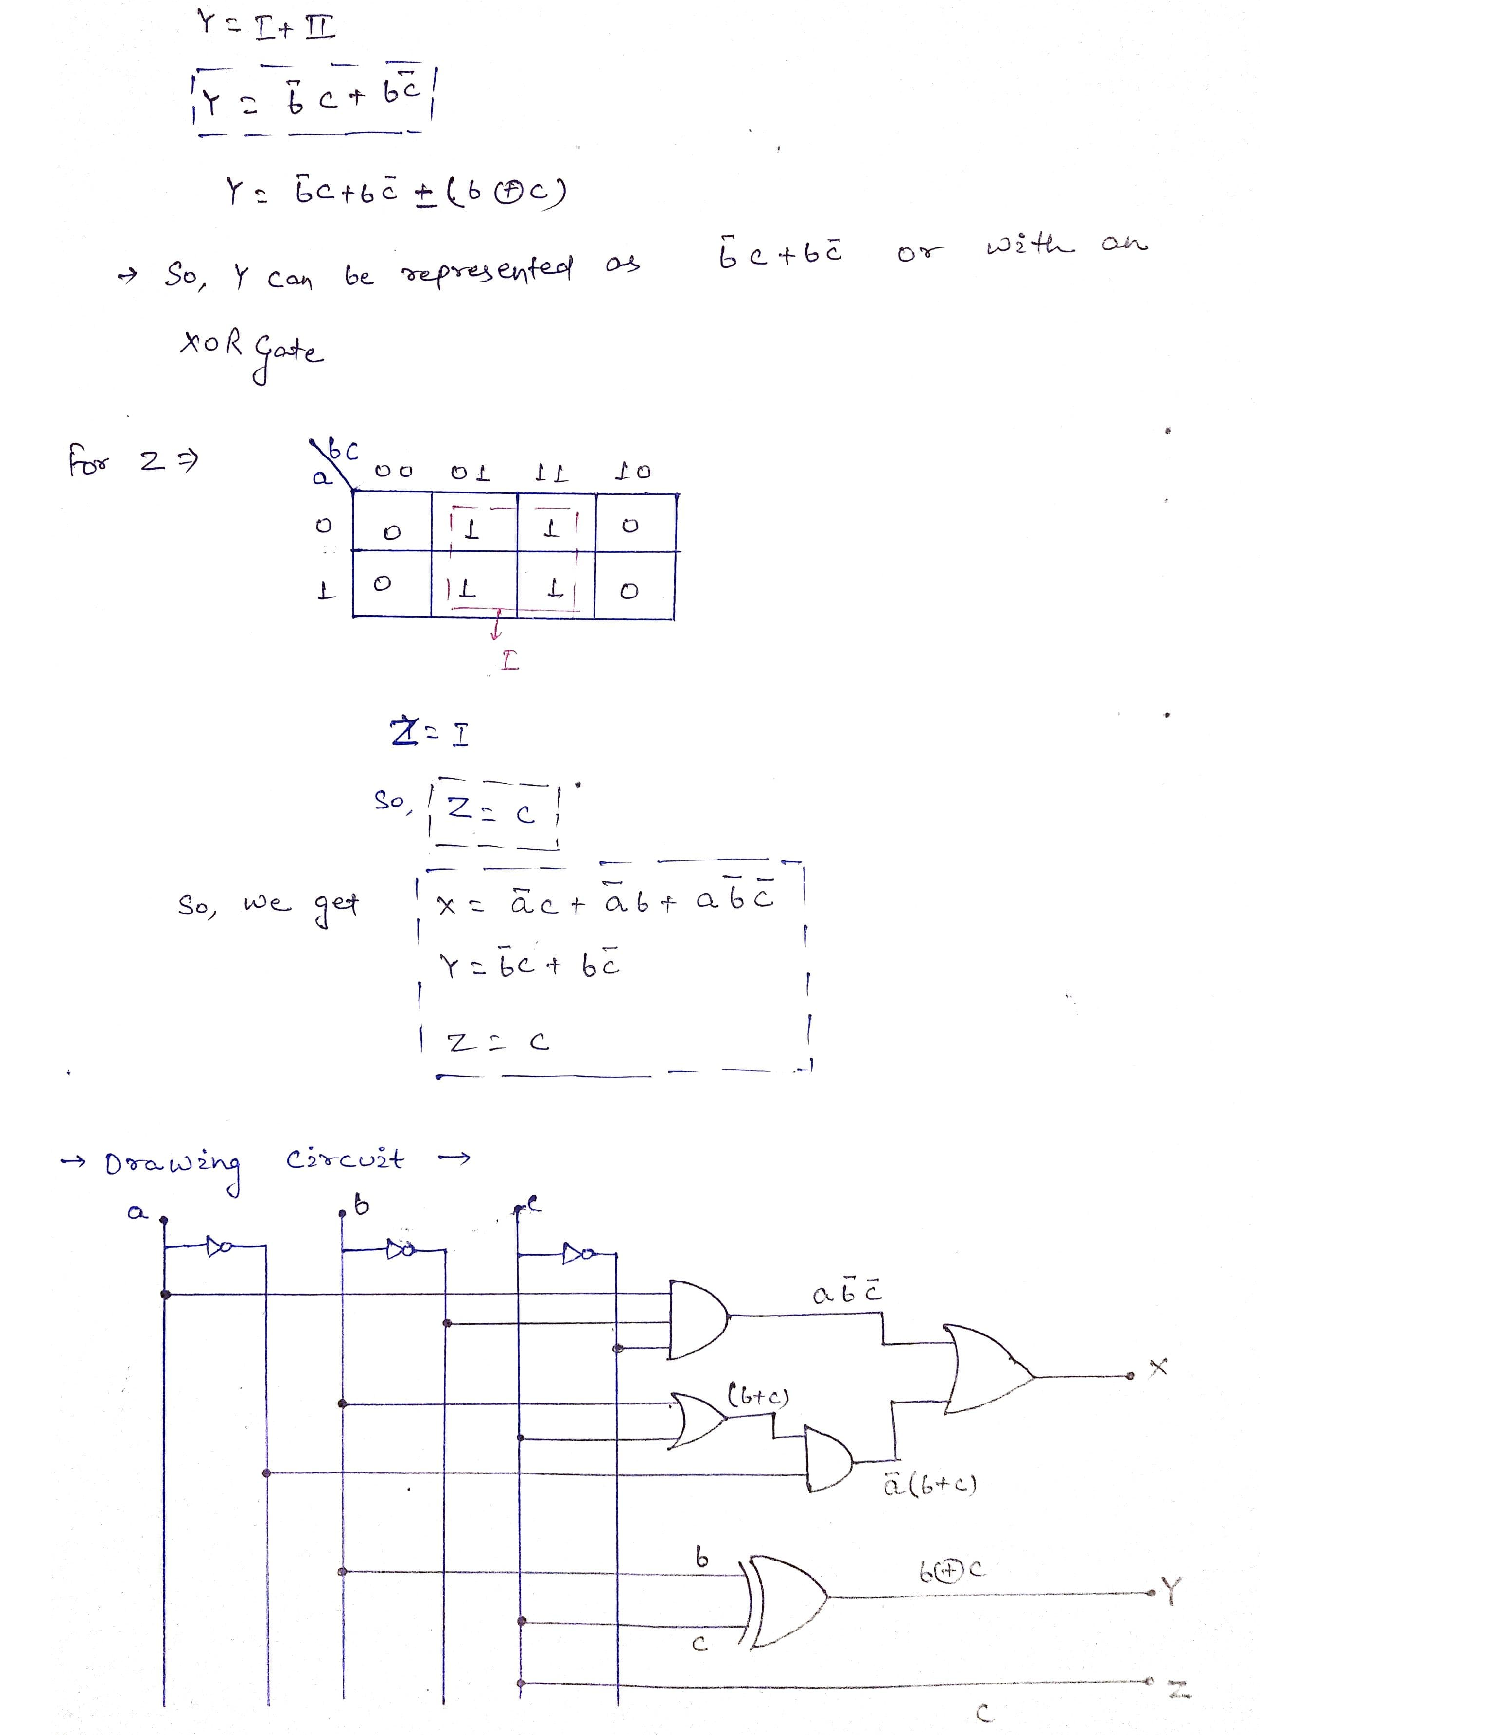 Y = I + II
Y = b̄c + bc̄
Y = b̄c + bc̄ ± (b ⊕ c)
→ So, Y can be represented as b̄c + bc̄ or with an
XOR Gate
For Z ⇒
bc
a 00 01 11 10
0 0 1 1 0
1 0 1 1 0
I
Z = I
So, Z = c
So, we get X = āc + āb + ab̄c̄
Y = b̄c + bc̄
Z = c
→ Drawing circuit →
a b c
ab̄c̄
X
(b+c)
ā(b+c)
b
b⊕c
Y
c
Z
c